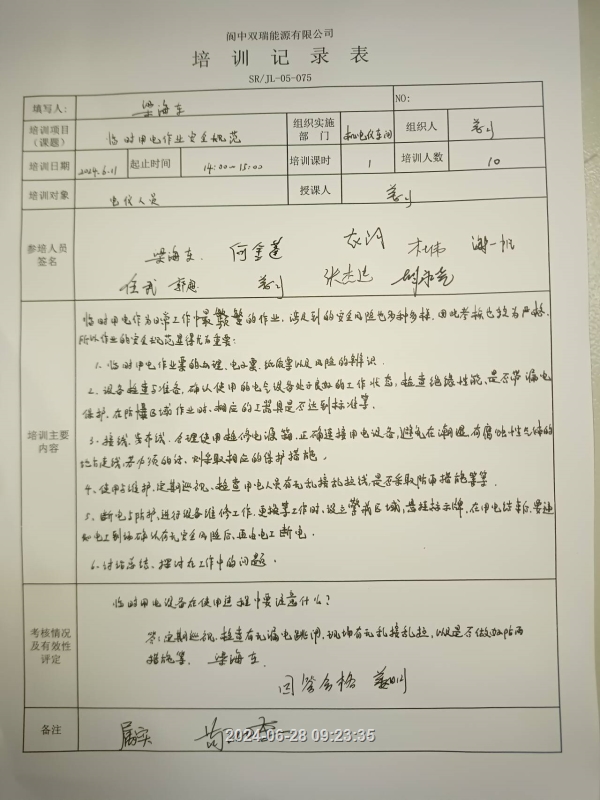 阆中双瑞能源有限公司
培训记录表
SR/JL-05-075
填写人: 梁海东 NO:
培训项目（课题） 临时用电作业安全规范 组织实施部门 机电仪车间 组织人
培训日期 2024.6.11 起止时间 14:00—15:00 培训课时 1 培训人数 10
培训对象 电仪人员 授课人
参培人员签名
梁海东 何金莲 杜伟
任武 张杰
培训主要内容
临时用电作为日常工作中最频繁的作业，涉及到的安全风险也多种多样，因此考核也较为严格，
所以作业的安全规范显得尤为重要：
1. 临时用电作业票的办理，电工票，纸质票以及风险的辨识。
2. 设备检查与准备，确认使用的电气设备处于良好的工作状态，检查绝缘性能、是否带漏电
保护，在防爆区域作业时，相应的工器具是否达到标准等。
3. 接线、布线，合理使用检修电源箱，正确连接用电设备，避免在潮湿、有腐蚀性气体的
地点走线，若必须的话，则采取相应的保护措施。
4、使用与维护，定期巡视，检查用电人员有无乱接乱拉线，是否采取防雨措施等等。
5、断电与防护，进行设备维修工作，更换等工作时，设立警戒区域，悬挂标示牌，在用电结束后，要通
知电工到场确认在无安全风险后，再由电工断电。
6. 讨论总结，探讨在工作中的问题。
考核情况及有效性评定
临时用电设备在使用过程中要注意什么？
答：定期巡视，检查有无漏电跳闸，现场有无乱接乱拉，以及是否做好防雨
措施等。 梁海东
回答合格
备注 属实
2024-06-28 09:23:35